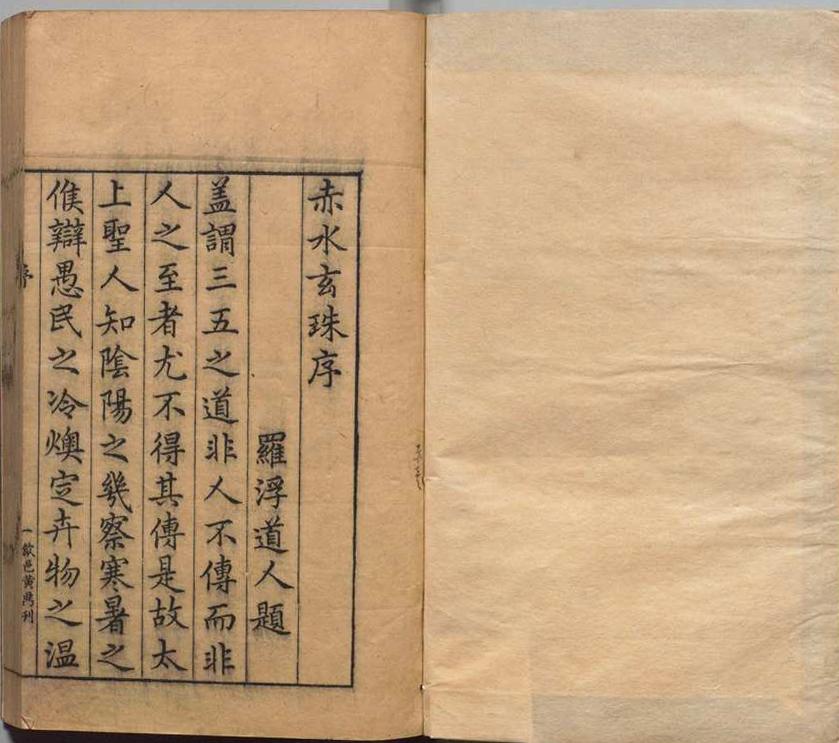 赤水玄珠序
羅浮道人題
盖謂三五之道非人不傳而非
人之至者尤不得其傳是故太
上聖人知陰陽之幾察寒暑之
候辯愚民之冷燠定卉物之温
序
一
歙邑黄
刊